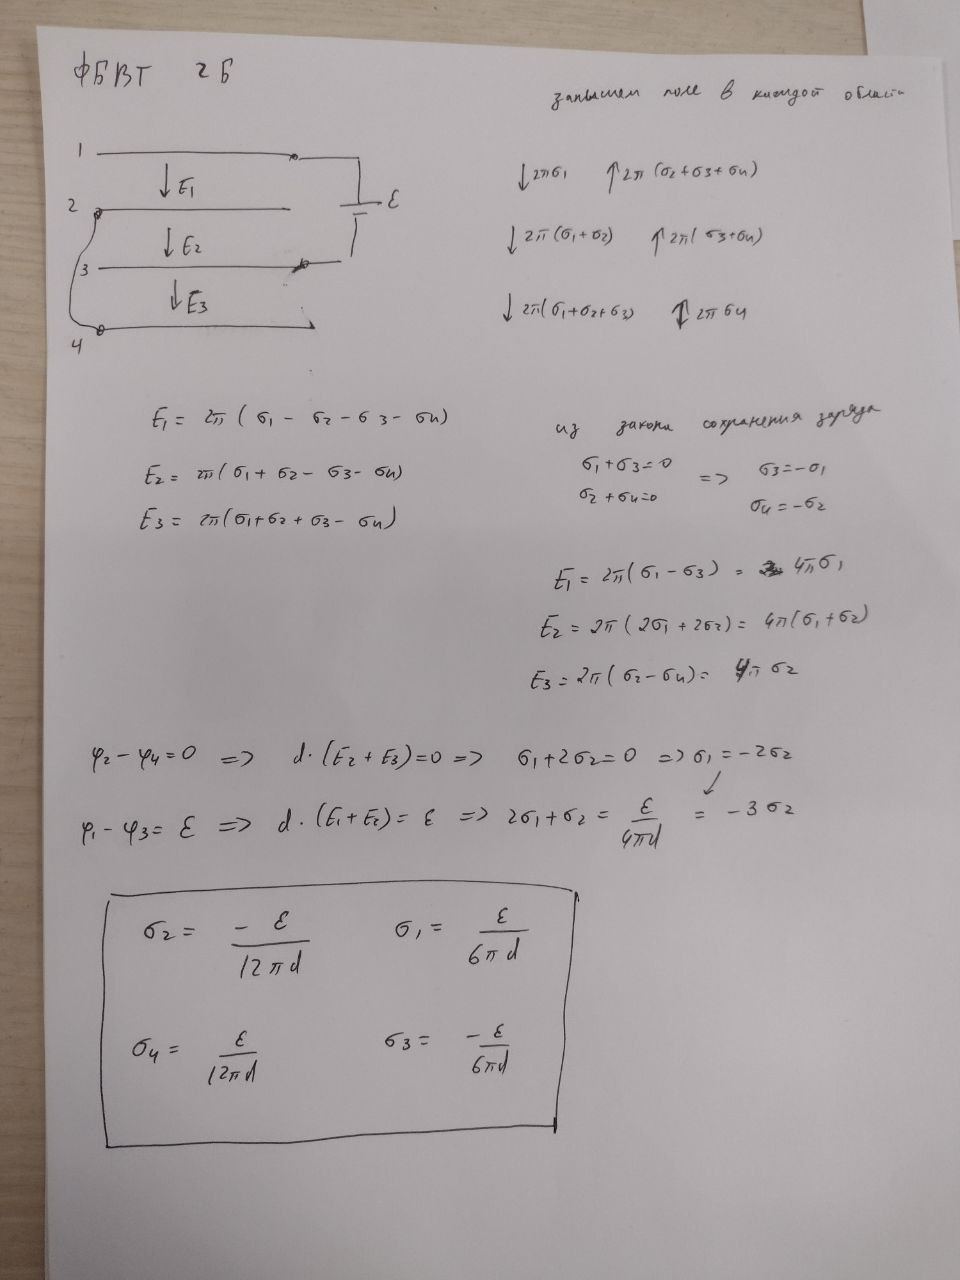 ФБВТ 2Б
запишем поле в каждой области
1
2
3
4
E1
E2
E3
ℰ
↓2πσ1 ↑2π (σ2+σ3+σ4)
↓2π(σ1+σ2) ↑2π(σ3+σ4)
↓2π(σ1+σ2+σ3) ↑2πσ4
E1 = 2π (σ1 - σ2 - σ3 - σ4)
E2 = 2π(σ1 + σ2 - σ3 - σ4)
E3 = 2π(σ1+σ2 + σ3 - σ4)
из закона сохранения заряда
σ1+σ3=0 => σ3=-σ1
σ2+σ4=0 σ4=-σ2
E1 = 2π(σ1-σ3) = 4πσ1
E2 = 2π(2σ1+2σ2) = 4π(σ1+σ2)
E3 = 2π(σ2-σ4) = 4πσ2
φ2-φ4=0 => d·(E2+E3)=0 => σ1+2σ2=0 => σ1=-2σ2
φ1-φ3=ℰ => d·(E1+E2)=ℰ => 2σ1+σ2 = ℰ/4πd = -3σ2
σ2 = -ℰ/12πd σ1 = ℰ/6πd
σ4 = ℰ/12πd σ3 = -ℰ/6πd